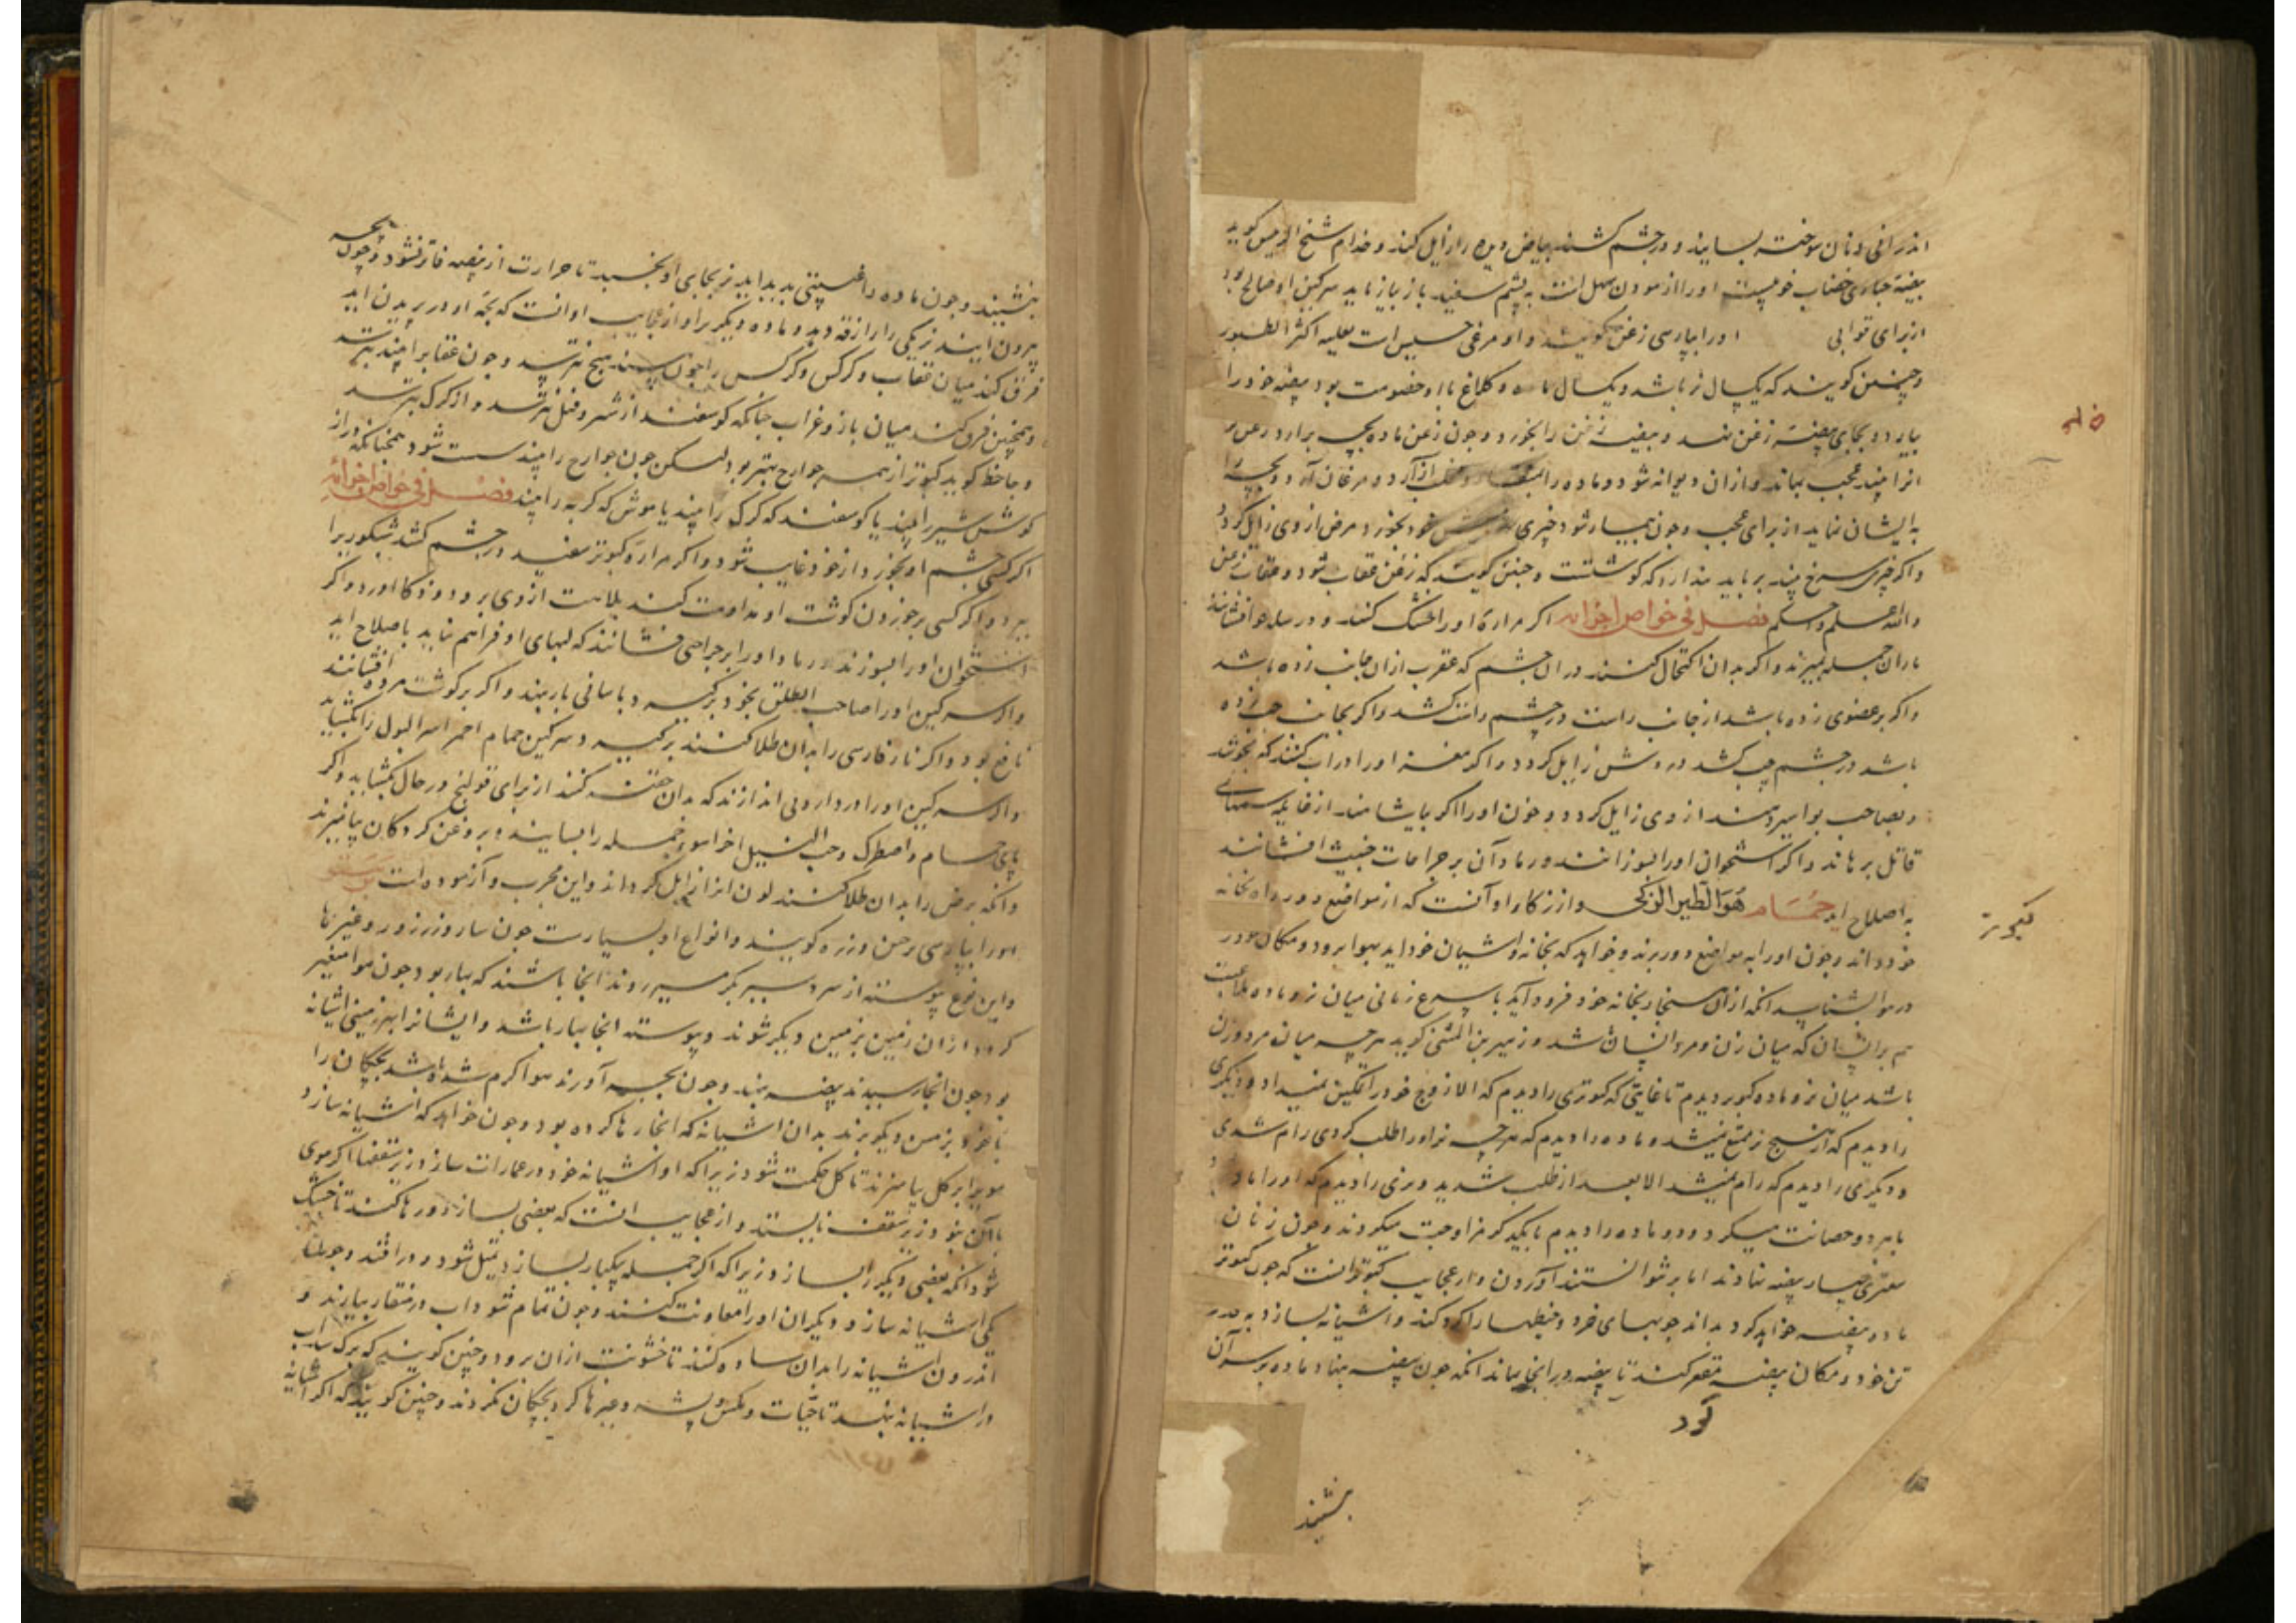 اندرانی و نان سوخته بسایند و در چشم کشند بیاض دیده را زایل کند و خدام شیخ الرییس کوید
بیضهٔ حباری خضاب اورا ازمودن سهل است به پشم سفید باز باز ماید سرکین او صالح بود
از برای قوابی اورا بپارسی زغن کویند و او مرغی خسیس است اکثر الطیور
و چنین کویند که یکسال نر باشد و یکسال ماده و کلاغ با او خصومت بود بیضه خود را
بیارد و بجای بیضهٔ زغن نهد و بیضهٔ زغن را بخورد و چون زغن ماده بچه برارد زغن نر
انرا بیند عجب بماند و ازان دیوانه شود و ماده را آرد و مرغان آرد و بچه را
به ایشان نماید از برای عجب و چون بیمار شود چیزی خود بخورد مرض از وی زایل کردد
و اکر چیزی سرخ بیند برباید پندارد که کوشتست و چنین کویند که زغن عقاب شود و عقاب زغن
والله اعلم و احکم فصل فی خواص اجزائه اکر مرارهٔ اورا خشک کنند و در افشانند
ماران جمله بمیرند و اکر بدان اکتحال کنند در ان چشم که عقرب ازان جانب زده باشد
و اکر بر عضوی زده باشد از جانب راست در چشم راست کشد و اکر بجانب چپ زده
باشد در چشم چپ کشد در وش زایل کردد و اکر اورا در اب کنند که بجوشد
و بصاحب بواسیر دهند از وی زایل کردد و خون اورا اکر بیاشامند از سمهای
قاتل برهاند و اکر استخوان اورا بسوزانند و رماد آن بر جراحات خبیث افشانند
به اصلاح اید حمام هُوَ الطَّیر الزکی و از زکار او آنست که از مواضع دور راه بخانه
خود داند و چون اورا به مواضع دور برند و خواهد که بخانه و اشیان خود اید بهوا برود و مکان خود در
در هوا بشناسد انکه ازان بخانه خود فرود آید با سرع زمانی میان نر و ماده ملاعبت
هم برانسان که میان زن و مرد انسان باشد و زبیر بن المثنی کوید هر چه میان مرد و زن
باشد میان نر و ماده کبوتر دیدم تا غایتی که کبوتری را دیدم که الا زوج خود را تمکین نمیداد و دیکری
را دیدم که از هیچ نر ممتنع نمیشد و ماده را دیدم که هر چه نر اورا طلب کردی رام شدی
و دیکری را دیدم که رام نمیشد الا بعد از طلب شدید و نری را دیدم که اورا ماده
بابرد و حضانت میکرد و دو ماده را دیدم با یکدیکر مزاوجت میکردند و چون زنان
بیضه نهادند اما بر نتوانستند آوردن و از عجایب کبوتر انست که چون کبوتر
ماده بیضه خواهد کرد بداند چوبهای خرد و خیطها را کرد کند و اشیانه بسازد به قدر
تن خود و مکان بیضه مقعر کند تا بیضه در انجا بماند انکه چون بیضه بنهاد ماده بر سر آن
کرد
بنشیند
کبوتر
بنشیند و چون ماده را غیبتی پدید اید نر بجای او بخسبد تا حرارت از بیضه فاتر نشود و چون بچه
بیرون ایند نر یکی را از زقه دهد و ماده دیکریرا و از عجایب او انست که بچهٔ او در پریدن اید
فرق کند میان عقاب و کرکس و کرکس را چون بیند هیچ نترسد و چون عقابرا بیند بترسد
و همچنین فرق کند میان باز و غراب چنانکه کوسفند از شیر و فیل نترسد و از کرک بترسد
و جاحظ کوید کبوتر از همه جوارح بهتر بود لیکن چون جوارح را بیند سست شود همچنانکه دراز
کوش شیر را بیند یا کوسفند که کرک را بیند یا موش که کربه را بیند فصل فی خواص اجزائه
اکر کسی چشم او بخورد از خود غایب شود و اکر مرارهٔ کبوتر سفید در چشم کشد شبکوریرا
ببرد و اکر کسی بر خوردن کوشت او مداومت کند بلادت از وی برود و ذکا اورد و اکر
استخوان اورا بسوزند و رماد اورا بر جراحتی فشانند که لبهای او فراهم نیاید باصلاح اید
و اکر سرکین اورا صاحب الطلق بخود برکیرد و باسانی بار بنهد و اکر بر کوشت مرده افشانند
نافع بود و اکر نار فارسی را بدان طلا کنند برکیرد و سرکین حمام احمر اسر البول را بکشاید
و اکر سرکین اورا در دارویی اندازند که بدان حقنه کنند از برای قولنج در حال بکشاید و اکر
پای حمام و اصطرک و حب النیل اخرا سوا جمله را بسایند و بروغن کردکان بیامیزند
و انکه برص را بدان طلا کنند لون انرا زایل کرداند و این مجرب و آزموده است
اورا بپارسی کویند و انواع او بسیارست چون سار و زرزور و غیرها
و این نوع پیوسته از سردسیر بکرمسیر روند انجا باشند که بهار بود چون هوا متغیر
کردد ازان زمین بزمین دیکر شوند و پیوسته انجا بهار باشد و ایشانرا بهر زمینی اشیانه
بود چون انجا رسیدند بیضه بنهند و چون بچه آورند هوا کرم شده باشد بچکان را
با خود بزمین دیکر برند بدان اشیانه که انجا رها کرده بود و چون خواهد که اشیانه سازد
مویرا بر کل بیامیزند تا کل حکمت شود زیرا که او اشیانه خود در عمارات سازد زیر سقفها اکر موی
با آن نبود زیر سقف نایستد و از عجایب انست که بعضی بسازد و رها کند تا خشک
شود انکه بعضی دیکر را بسازد زیرا که اکر جمله بیکبار بسازد ثقیل شود و در افتد و چون
یکی اشیانه سازد دیکران اورا معاونت کنند و چون تمام شود اب در منقار بیارند و
اندرون اشیانه را بدان ساده کنند تا خشونت ازان برود و چنین کویند که برک سداب
در اشیانه نهد تا حیات و مکس و پشه و غیرها کرد بچکان نکردند و چنین کویند که اکر اشیانه